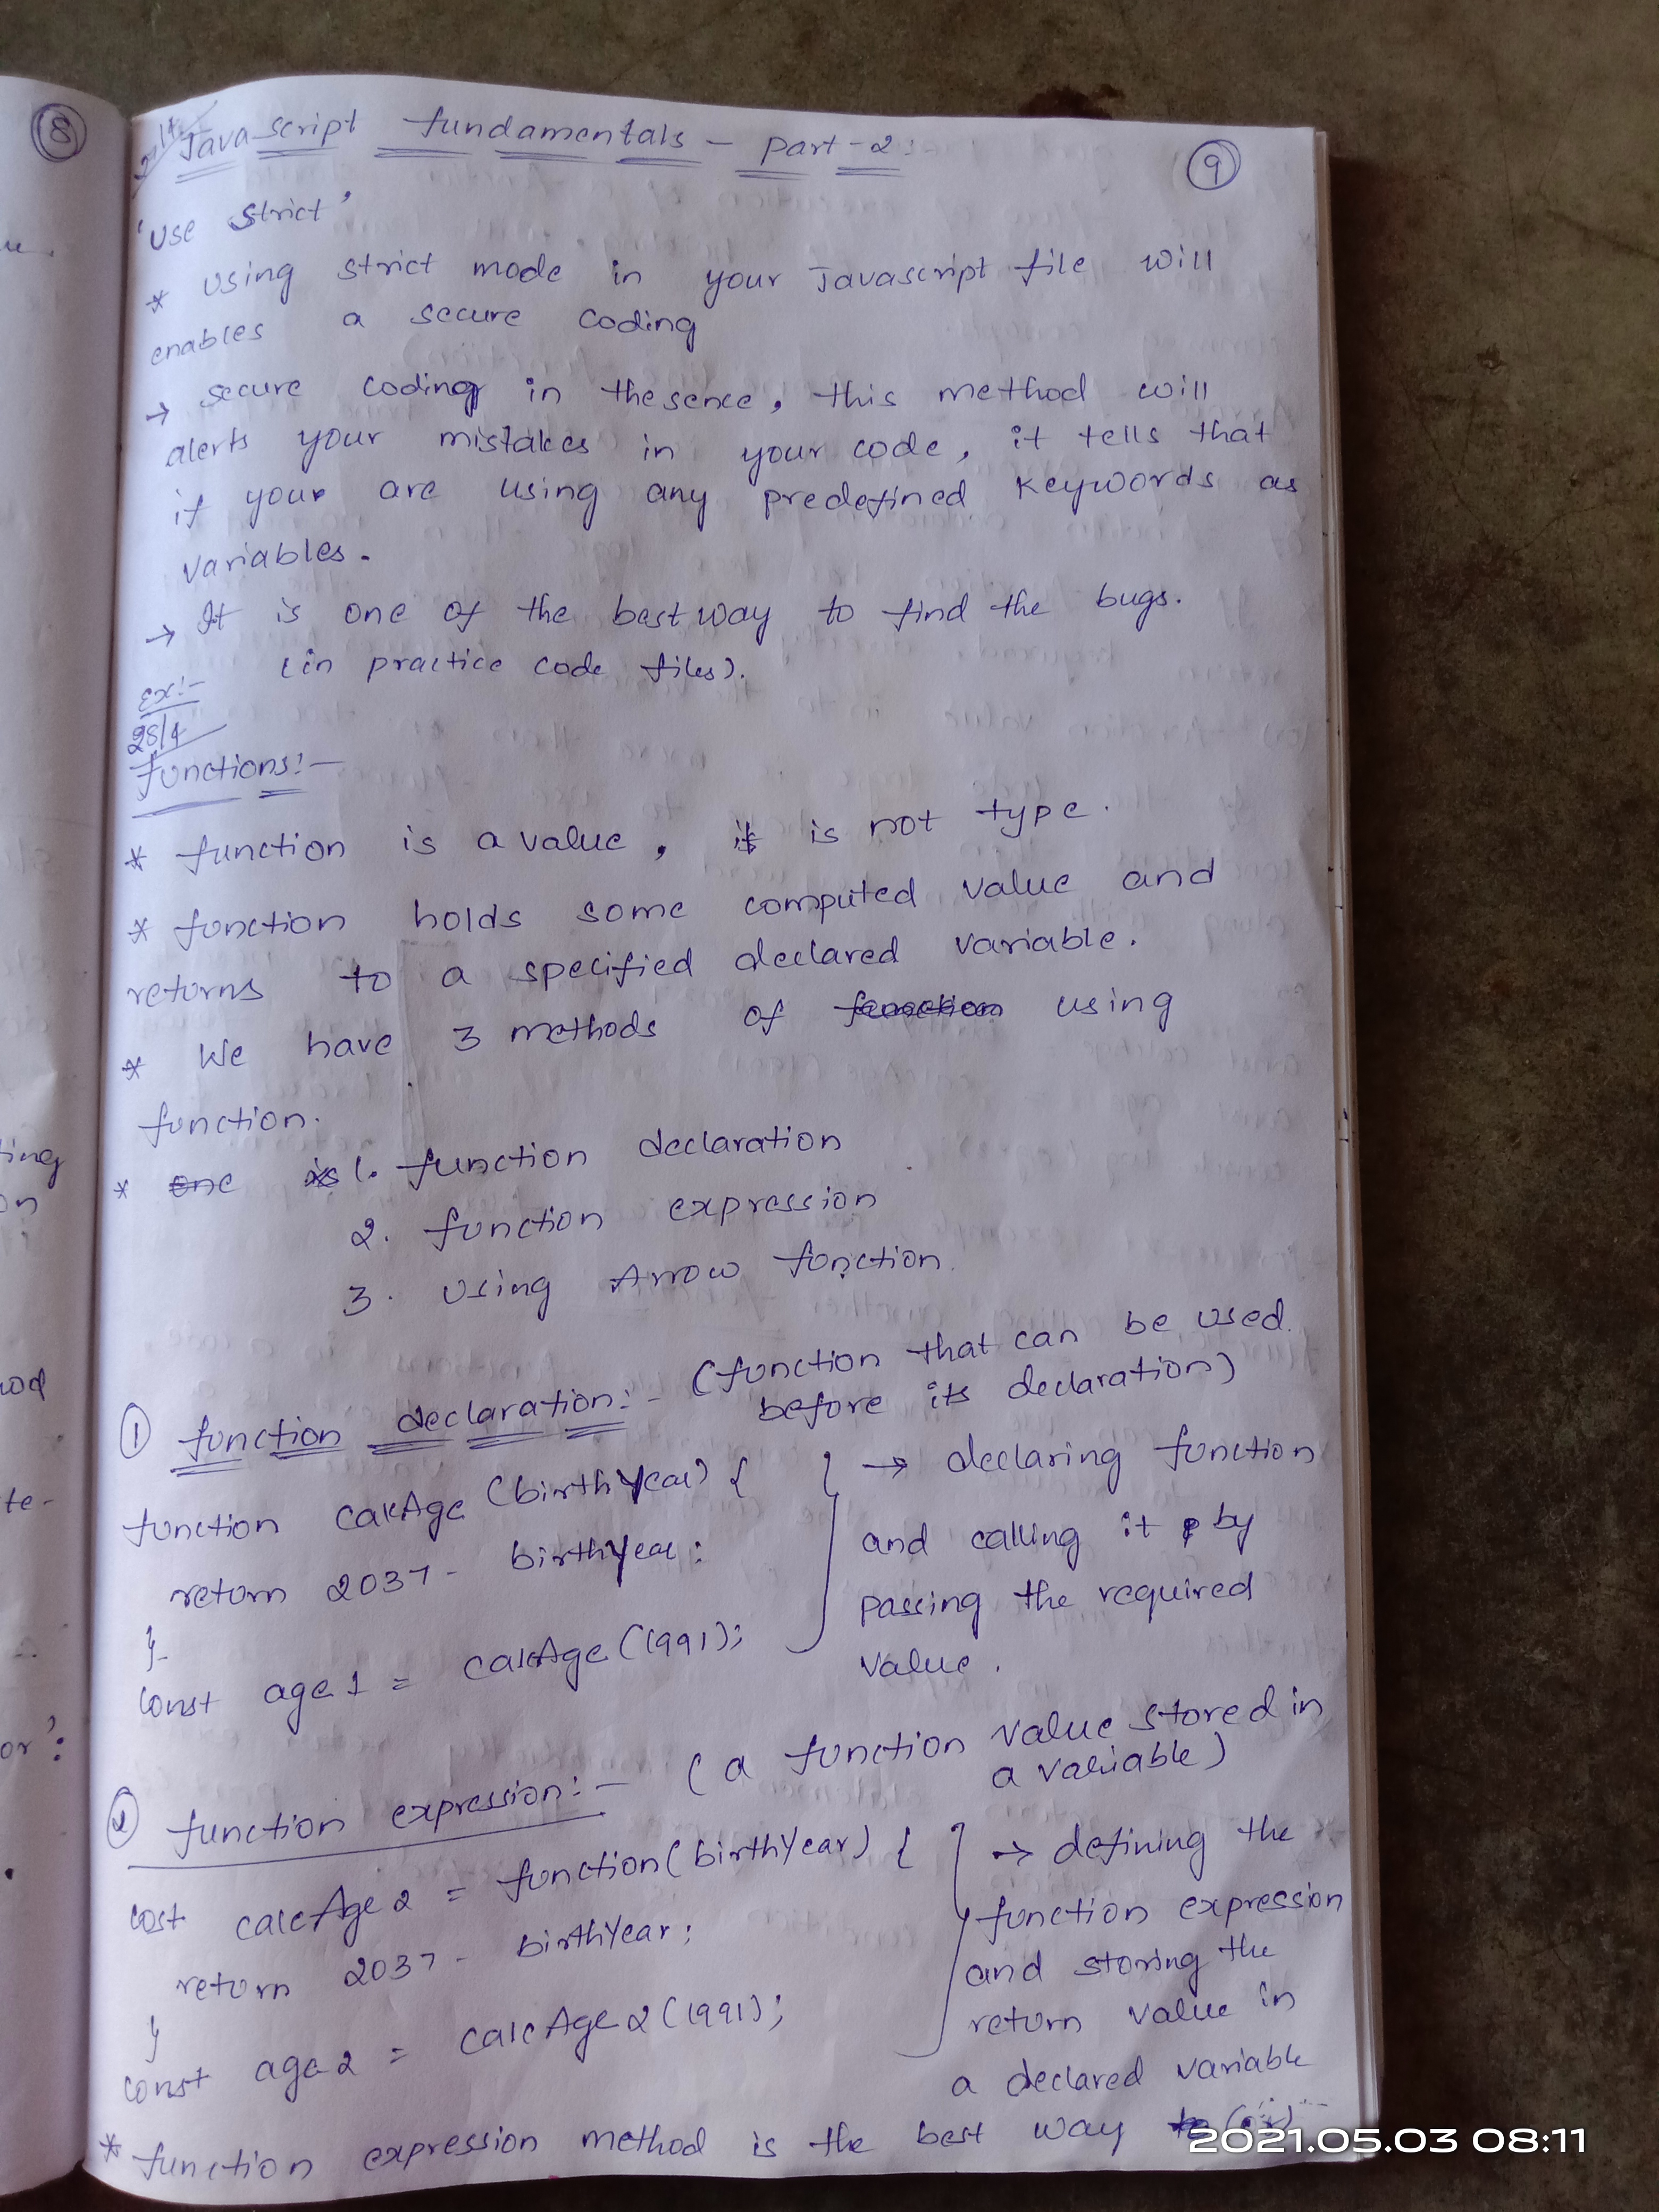 8
Javascript fundamentals - part-2:
9
'use strict'
* using strict mode in your Javascript file will
enables a secure coding
→ secure coding in thesence, this method will
alerts your mistakes in your code, it tells that
if your are using any predefined keywords as
variables.
→ It is one of the best way to find the bugs.
Ex:- (in practice code files).
28/4
functions:-
* function is a value, it is not type.
* function holds some computed value and
returns to a specified declared variable.
* We have 3 methods of function using
function.
* one is 1. function declaration
2. function expression
3. Using Arrow function.
① function declaration:- (function that can be used
before its declaration)
function calcAge (birthYear) {
return 2037 - birthYear;
}
const age1 = calcAge (1991);
→ declaring function
and calling it by
passing the required
value.
② function expression:- (a function value stored in
a variable)
cost calcAge2 = function (birthYear) {
return 2037 - birthYear;
}
const age2 = calcAge2 (1991);
→ defining the
function expression
and storing the
return value in
a declared variable
* function expression method is the best way
2021.05.03 08:11
ting
on
te-
or':